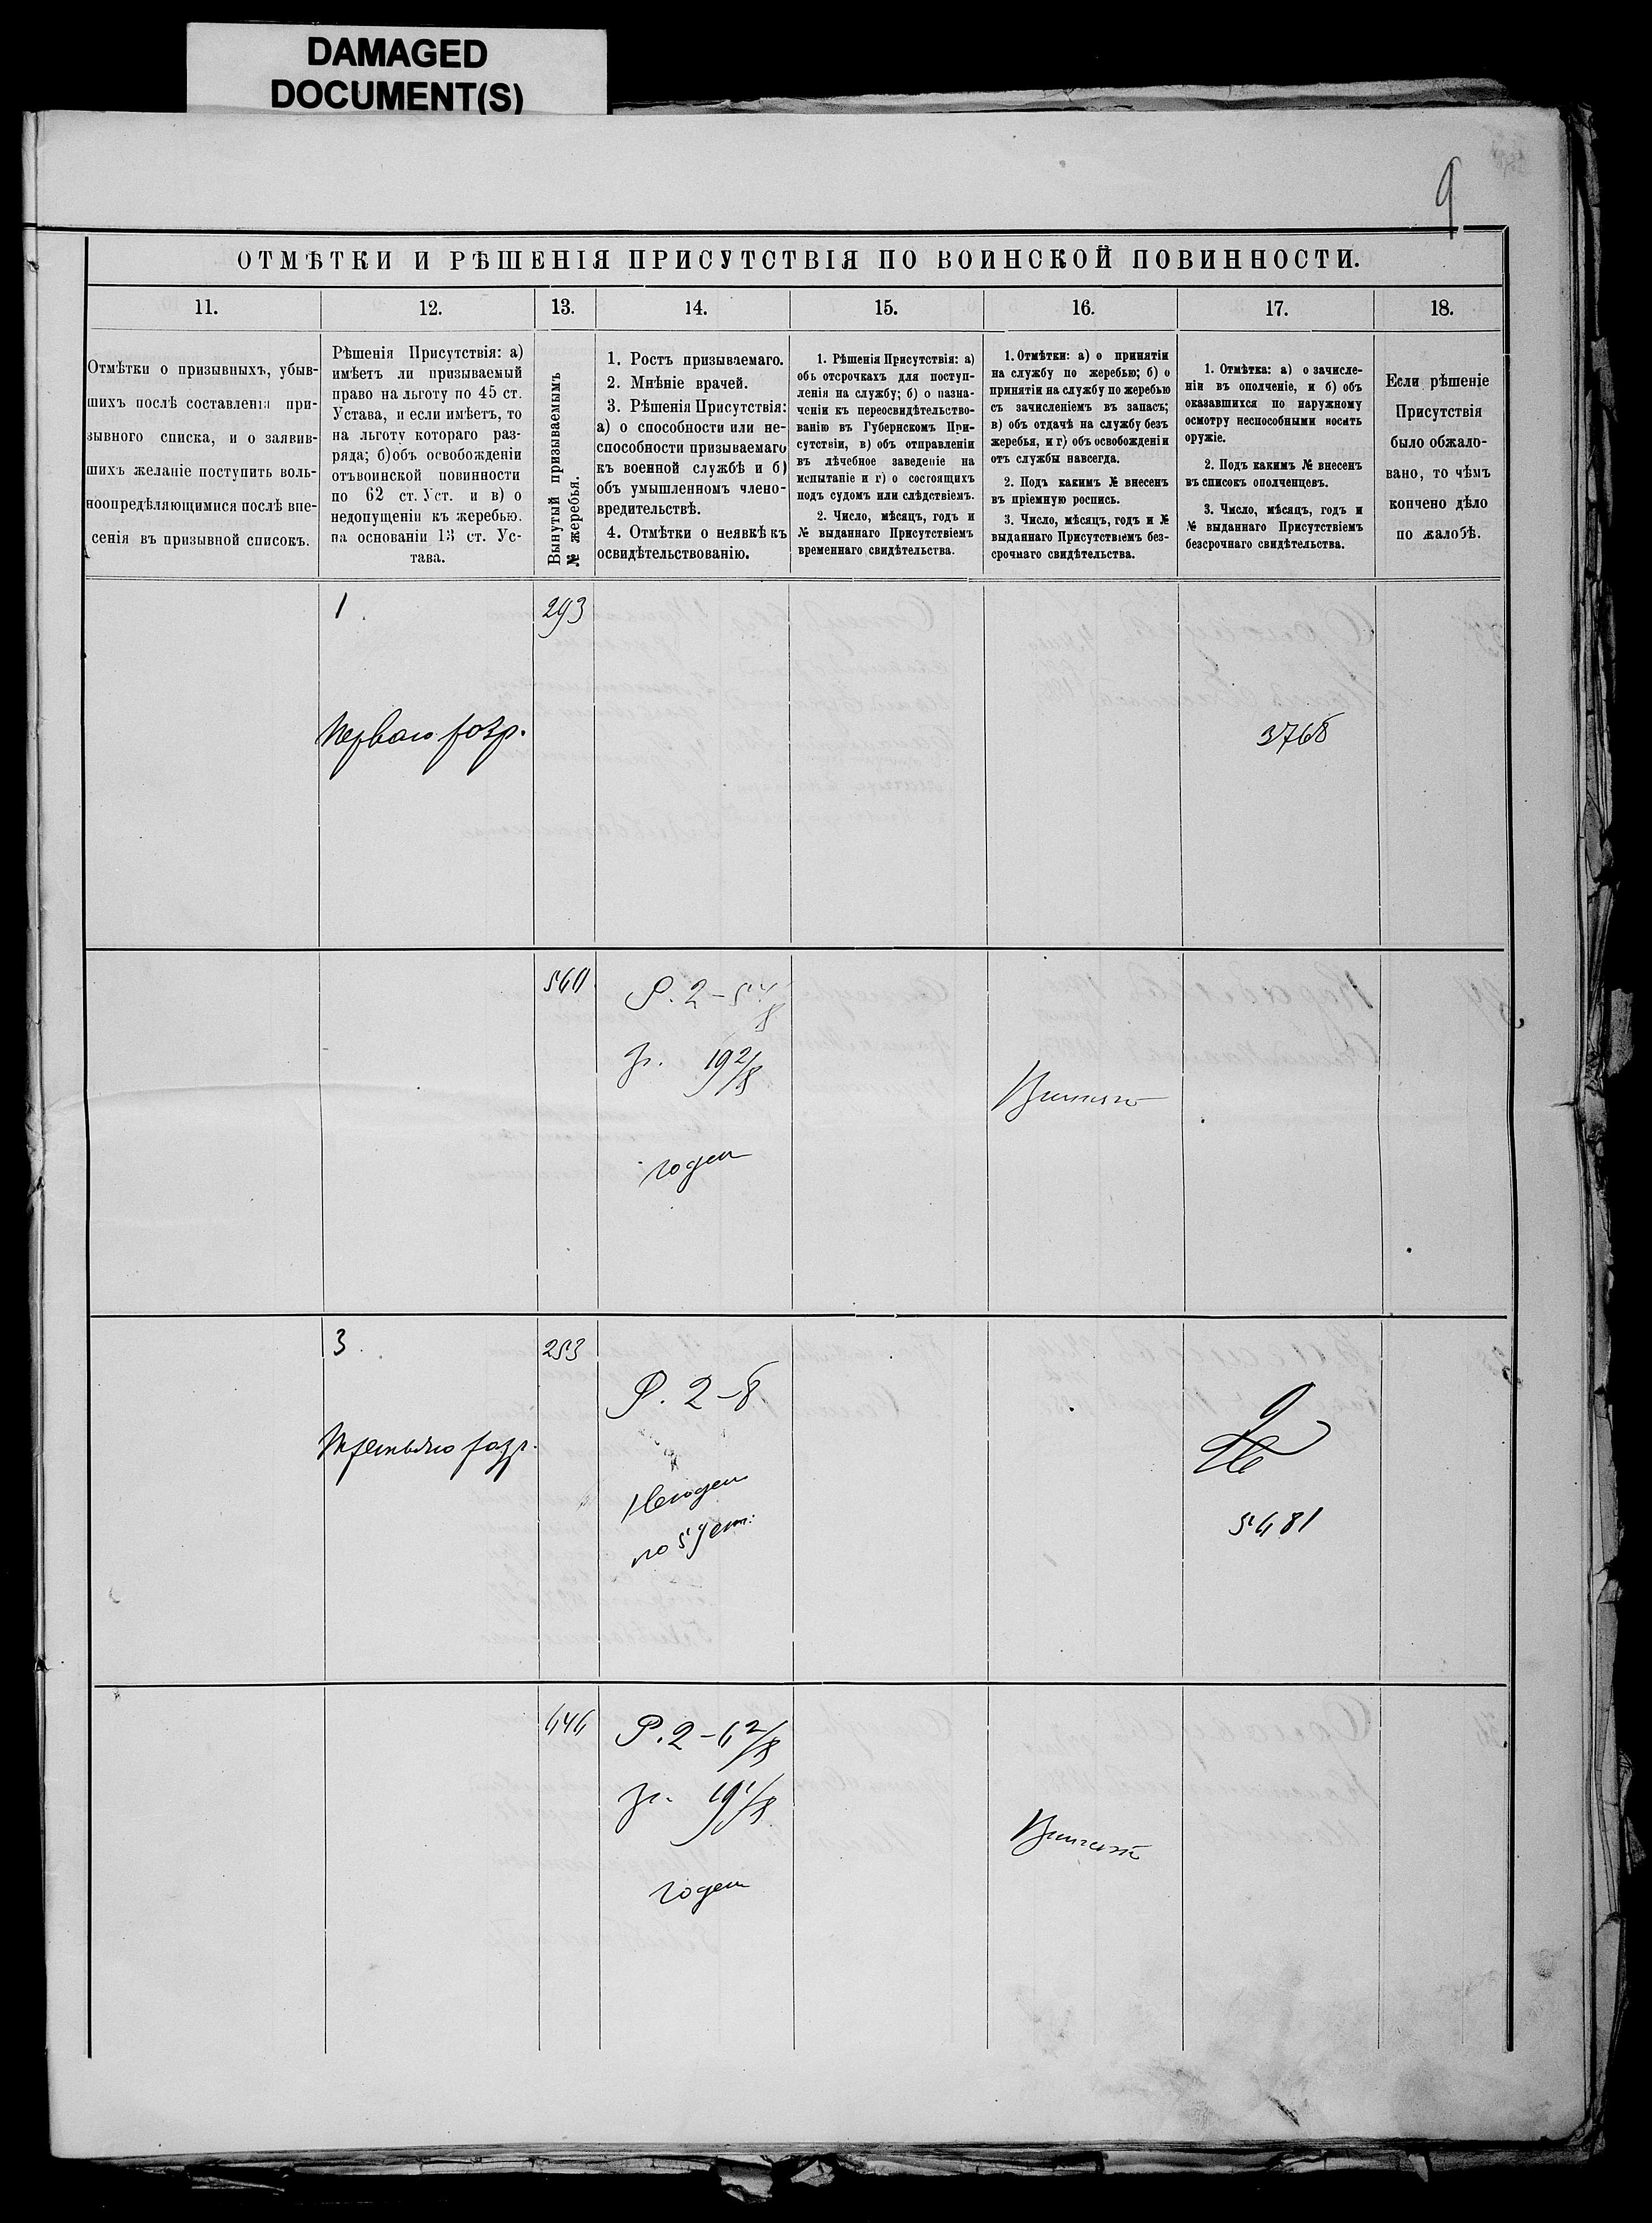 DAMAGED
DOCUMENT(S)
9
ОТМѢТКИ И РѢШЕНІЯ ПРИСУТСТВІЯ ПО ВОИНСКОЙ ПОВИННОСТИ.
11.
12.
13.
14.
15.
16.
17.
18.
Отмѣтки о призывныхъ, убыв-
шихъ послѣ составленія при-
зывного списка, и о заявив-
шихъ желаніе поступить воль-
ноопредѣляющимися послѣ вне-
сенія въ призывной списокъ.
Рѣшенія Присутствія: а)
имѣетъ ли призываемый
право на льготу по 45 ст.
Устава, и если имѣетъ, то
на льготу котораго раз-
ряда; б) объ освобожденіи
отъ воинской повинности
по 62 ст. Уст. и в) о
недопущеніи къ жеребью.
на основаніи 13 ст. Ус-
тава.
Вынутый призываемымъ
№ жеребья.
1. Ростъ призываемаго.
2. Мнѣніе врачей.
3. Рѣшенія Присутствія:
а) о способности или не-
способности призываемаго
къ военной службѣ и б)
объ умышленномъ члено-
вредительствѣ.
4. Отмѣтки о неявкѣ къ
освидѣтельствованію.
1. Рѣшенія Присутствія: а)
объ отсрочкахъ для поступ-
ленія на службу; б) о назна-
ченіи къ переосвидѣтельство-
ванію въ Губернскомъ При-
сутствіи, в) объ отправленіи
въ лѣчебное заведеніе на
испытаніе и г) о состоящихъ
подъ судомъ или слѣдствіемъ.
2. Число, мѣсяцъ, годъ и
№ выданнаго Присутствіемъ
временнаго свидѣтельства.
1. Отмѣтки: а) о принятіи
на службу по жеребью; б) о
принятіи на службу по жеребью
съ зачисленіемъ въ запасъ;
в) объ отдачѣ на службу безъ
жеребья, и г) объ освобожденіи
отъ службы навсегда.
2. Подъ какимъ № внесенъ
въ пріемную роспись.
3. Число, мѣсяцъ, годъ и №
выданнаго Присутствіемъ без-
срочнаго свидѣтельства.
1. Отмѣтка: а) о зачисле-
ніи въ ополченіе, и б) объ
оказавшихся по наружному
осмотру неспособными носить
оружіе.
2. Подъ какимъ № внесенъ
въ списокъ ополченцевъ.
3. Число, мѣсяцъ, годъ и
№ выданнаго Присутствіемъ
безсрочнаго свидѣтельства.
Если рѣшеніе
Присутствія
было обжало-
вано, то чѣмъ
кончено дѣло
по жалобѣ.
1
293
Перваго разр.
3768
Р. 2 –
гр. 19 2/8
годен
3
253
Р. 2 – 8
Третьяго разр.
Негоден
Р. 2 – 6 2/8
гр. 19 1/8
годен